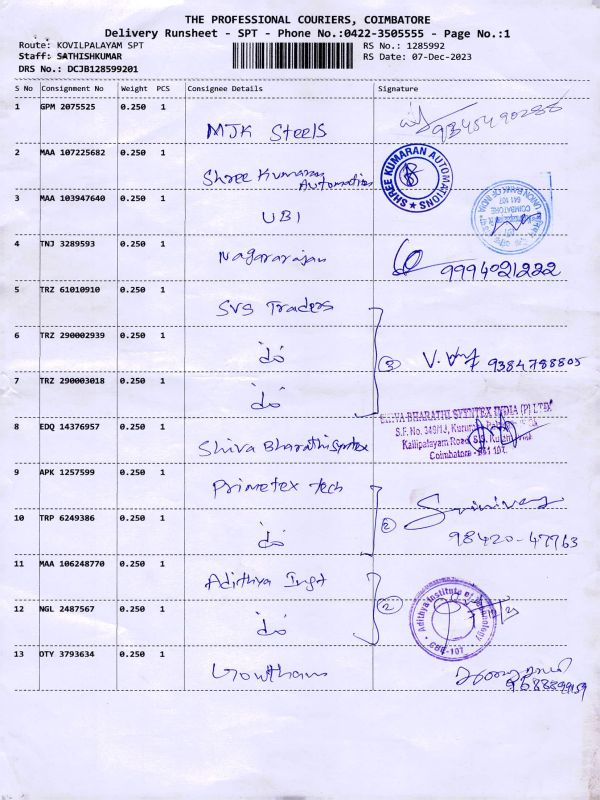 THE PROFESSIONAL COURIERS, COIMBATORE
Delivery Runsheet - SPT - Phone No.:0422-3505555 - Page No.:1
Route: KOVILPALAYAM SPT
Staff: SATHISHKUMAR
DRS No.: DCJB128599201
RS No.: 1285992
RS Date: 07-Dec-2023
S No Consignment No Weight PCS Consignee Details Signature
1 GPM 2075525 0.250 1 MJK Steels 9345490288
2 MAA 107225682 0.250 1 Shree Kumaran Automations
SHREE KUMARAN AUTOMATIONS
3 MAA 103947640 0.250 1 UBI
UNION BANK OF INDIA
COIMBATORE
641 107
4 TNJ 3289593 0.250 1 Nagararajan 9994021222
5 TRZ 61010910 0.250 1 SVS Traders
6 TRZ 290002939 0.250 1 do 3 9384788805
7 TRZ 290003018 0.250 1 do
8 EDQ 14376957 0.250 1 Shiva Bharathi Syntex
SHIVA BHARATHI SYNTEX INDIA (P) LTD
Kallipalayam Road
Coimbatore - 641 107.
9 APK 1257599 0.250 1 Primetex Tech
10 TRP 6249386 0.250 1 do 2 Srinivas
98420-47763
11 MAA 106248770 0.250 1 Adithya Inst
12 NGL 2487567 0.250 1 do 2
Adithya Institute of Technology
CBE-107
13 DTY 3793634 0.250 1 Gowtham